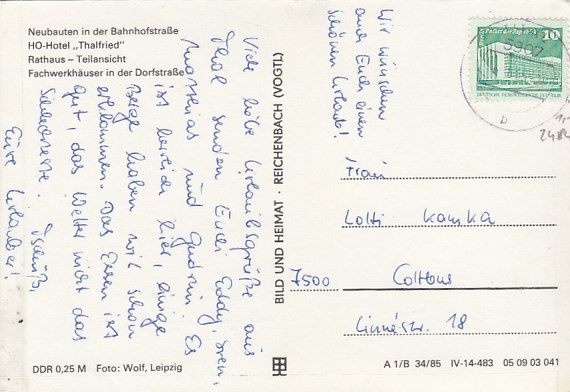 Neubauten in der Bahnhofstraße
HO-Hotel „Thalfried"
Rathaus – Teilansicht
Fachwerkhäuser in der Dorfstraße
Viele liebe Urlaubsgrüße aus
Thal senden Euch Eddy, Sven,
Matthias und Gudrun. Es
ist herrlich hier, einige
Berge haben wir schon
erklommen. Das Essen ist
gut, das Wetter nicht das
Schönste. Tschüß,
Eure Urlauber!
Wir wünschen
auch Euch einen
schönen Urlaub!
BILD UND HEIMAT · REICHENBACH (VOGTL)
10
5907
b
Frau
Lotti Kamka
7500 Cottbus
Linnéstr. 18
DDR 0,25 M Foto: Wolf, Leipzig
A 1/B 34/85 IV-14-483 05 09 03 041